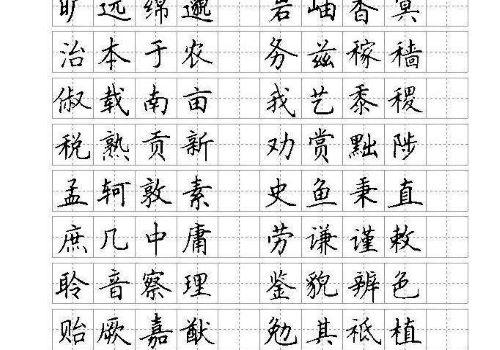 旷远绵邈 岩岫杳冥
治本于农 务兹稼穑
俶载南亩 我艺黍稷
税熟贡新 劝赏黜陟
孟轲敦素 史鱼秉直
庶几中庸 劳谦谨敕
聆音察理 鉴貌辨色
贻厥嘉猷 勉其祗植